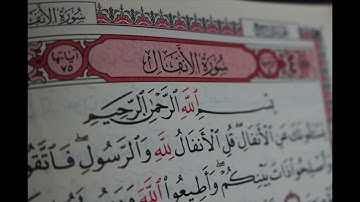 سُورَةُ الْأَنْفَالِ
آيَاتُهَا ٧٥
سُورَةُ الْأَنْفَالِ
بِسْمِ اللَّهِ الرَّحْمَٰنِ الرَّحِيمِ
يَسْـَٔلُونَكَ عَنِ الْأَنْفَالِ ۖ قُلِ الْأَنْفَالُ لِلَّهِ وَالرَّسُولِ ۖ فَاتَّقُوا
وَأَصْلِحُوا ذَاتَ بَيْنِكُمْ ۖ وَأَطِيعُوا اللَّهَ